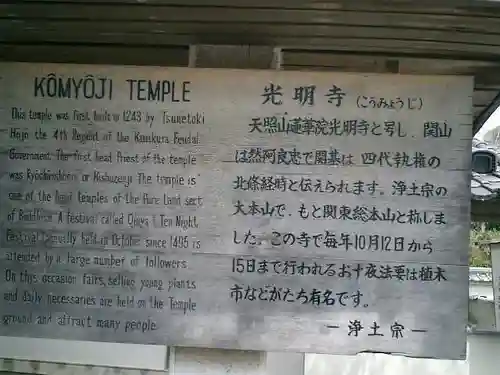 KŌMYŌJI TEMPLE
This temple was first built in 1243 by Tsunetoki
Hojo the 4th Regent of the Kamakura Feudal
Government. The first head Priest of the temple
was or The temple is
one of the head temples of the Pure Land sect
of Buddhism. A festival called Ten Night
Festival annually held in October since 1495 is
attended by a large number of followers
On this occasion fairs, selling young plants
and daily necessaries are held on the Temple
ground and attract many people.
光明寺 (こうみょうじ)
天照山蓮華院光明寺と号し、開山
は然阿良忠で開基は、四代執権の
北條経時と伝えられます。浄土宗の
大本山で、もと関東総本山と称しま
した。この寺で毎年10月12日から
15日まで行われるお十夜法要は植木
市などがたち有名です。
ー浄土宗ー